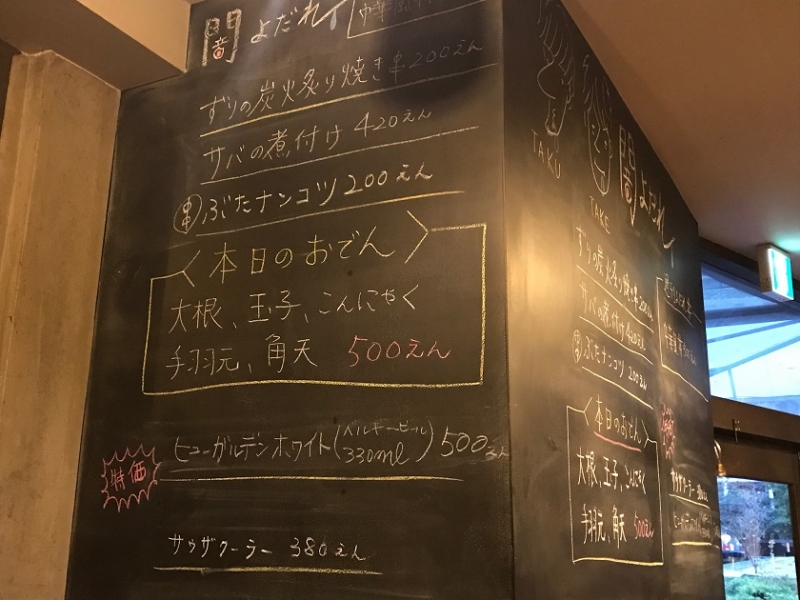 闇 よだれイ
ずりの炭火炙り焼き串 200えん
サバの煮付け 420えん
串 ぶたナンコツ 200えん
〈本日のおでん〉
大根、玉子、こんにゃく
手羽元、角天 500えん
特価 ヒューガルデンホワイト(ベルギービール 330ml) 500えん
サウザクーラー 380えん
TAKU
TAKE
闇 よだれイ
ずりの炭火炙り焼き串 200えん
サバの煮付け 420えん
串 ぶたナンコツ 200えん
〈本日のおでん〉
大根、玉子、こんにゃく
手羽元、角天 500えん
サウザクーラー
ヒューガルデンホワイト